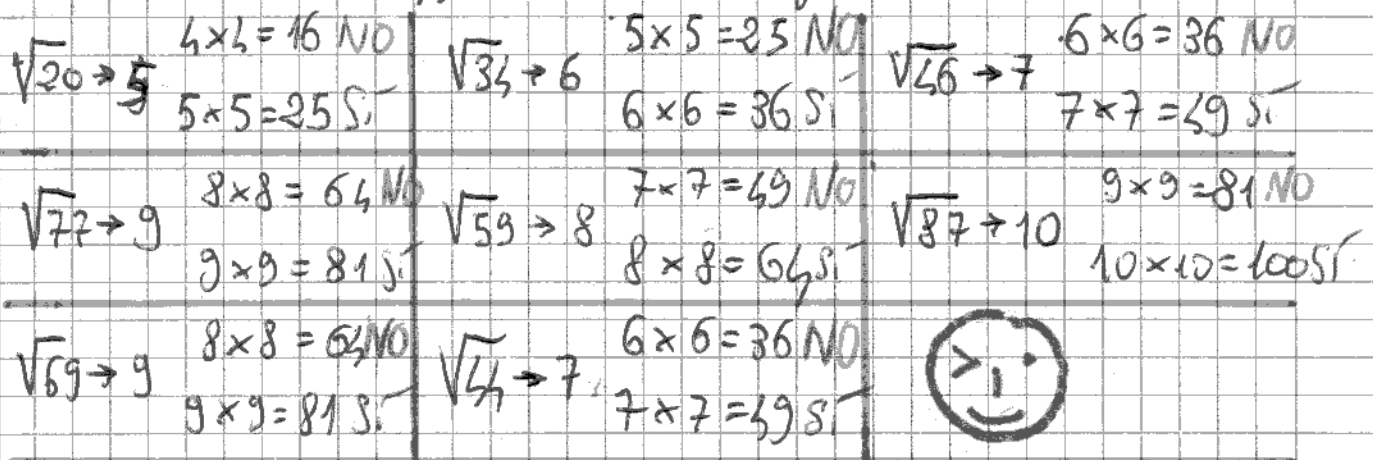 √20 → 5
4×4=16 NO
5×5=25 Sí
√34 → 6
5×5=25 NO
6×6=36 Sí
√46 → 7
6×6=36 NO
7×7=49 Sí
√77 → 9
8×8=64 NO
9×9=81 Sí
√59 → 8
7×7=49 NO
8×8=64 Sí
√87 → 10
9×9=81 NO
10×10=100 Sí
√69 → 9
8×8=64 NO
9×9=81 Sí
√44 → 7
6×6=36 NO
7×7=49 Sí